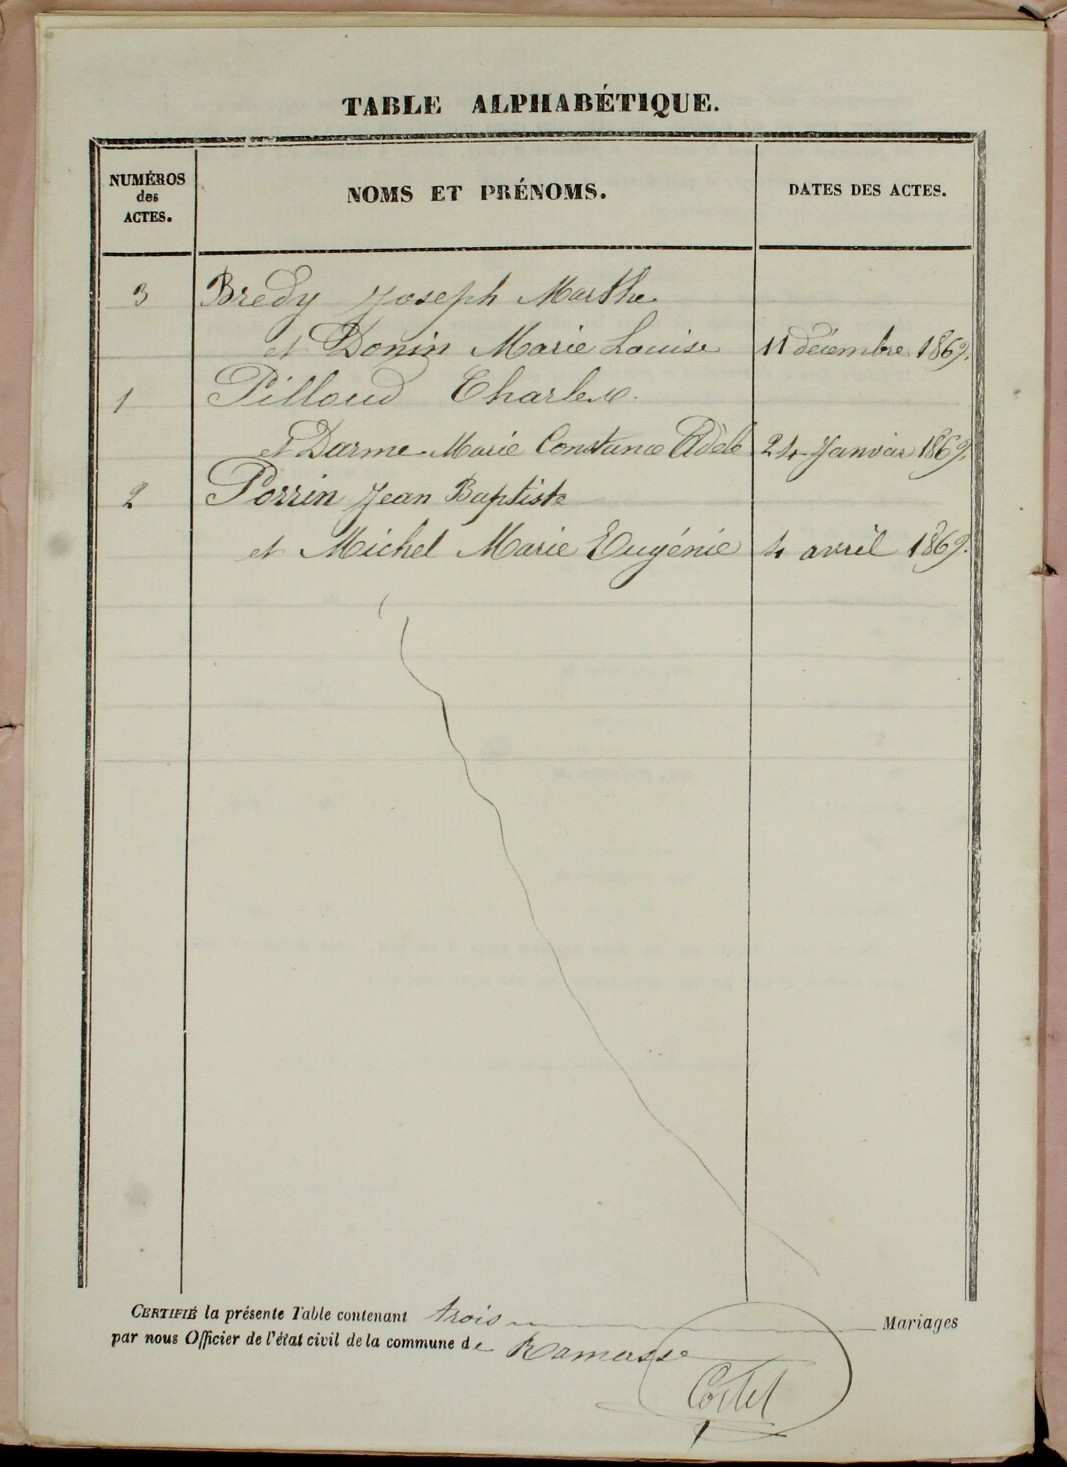 TABLE ALPHABÉTIQUE.
NUMÉROS des ACTES.
NOMS ET PRÉNOMS.
DATES DES ACTES.
3 Bredy Joseph Marthe
et Donin Marie Louise 11 décembre 1869.
1 Pilloud Charles.
et Darme Marie Constance Adèle 24 Janvier 1869.
2 Perrin Jean Baptiste
et Michel Marie Eugénie 4 avril 1869.
CERTIFIÉ la présente Table contenant trois Mariages
par nous Officier de l'état civil de la commune de Ramasse